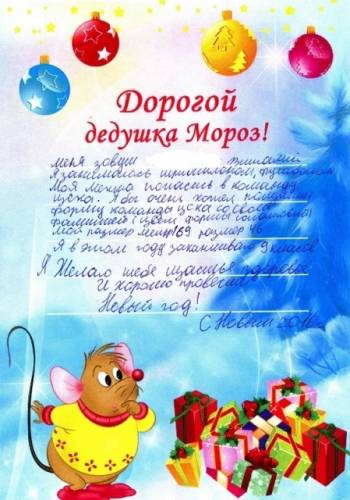 Дорогой
дедушка Мороз!
меня зовут
Я занимаюсь
Моя мечта попасть в команду
цска. Я бы очень хотел
форму команды цска со своей
фамилией (цвет формы
Мой размер 169 размер 46
Я в этом году заканчиваю 9 классов
Я Желаю тебе щастья здоровья
И хорошо провести
Новый год!
С Новым 2016